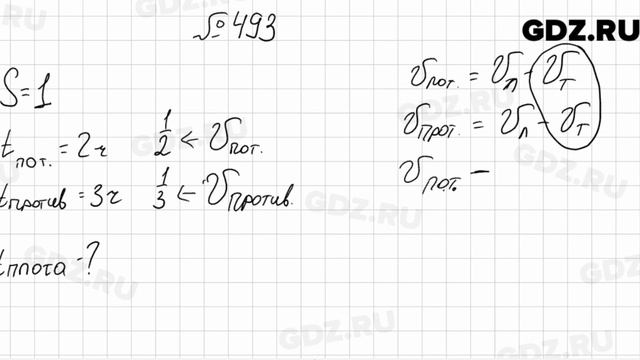 GDZ.RU
№ 493
S = 1
t пот. = 2ч 1/2 ← V пот.
t против = 3ч 1/3 ← V против.
t плота - ?
V пот. = V л - V т
V прот. = V л - V т
V пот. -
GDZ.RU
GDZ.RU
GDZ.RU
GDZ.RU
GDZ.RU
GDZ.RU